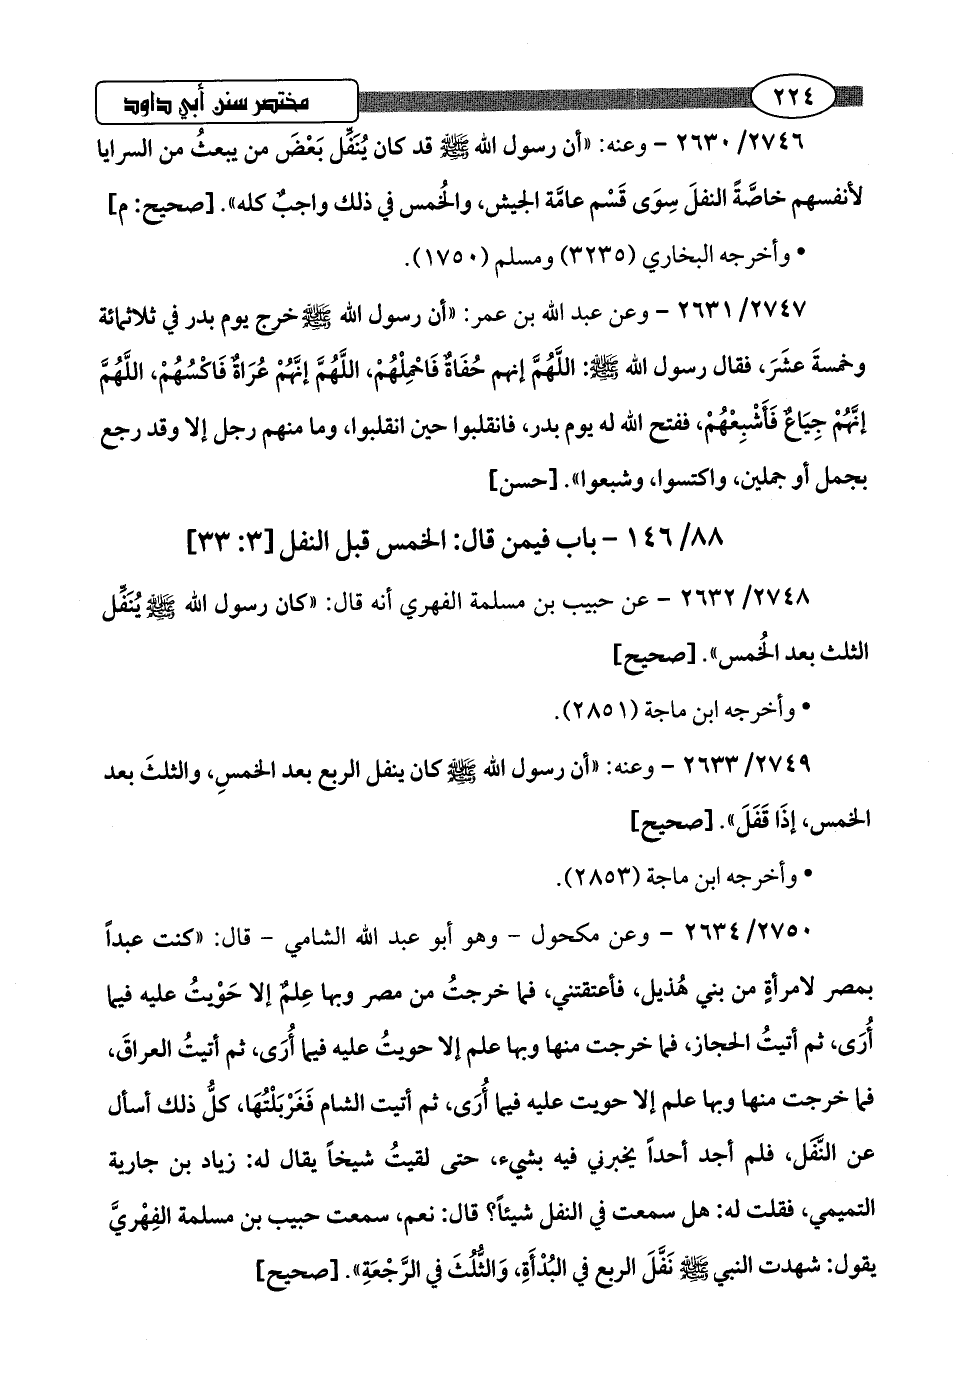 مختصر سنن أبي داود
٢٢٤
٢٦٣٠/٢٧٤٦ - وعنه: «أن رسول الله ﷺ قد كان يُنَفِّل بَعْضَ من يبعثُ من السرايا
لأنفسهم خاصَّةً النفلَ سِوَى قَسْم عامَّة الجيش، والخُمس في ذلك واجبٌ كله». [صحيح: م]
• وأخرجه البخاري (٣٢٣٥) ومسلم (١٧٥٠).
٢٦٣١/٢٧٤٧ - وعن عبد الله بن عمر: «أن رسول الله ﷺ خرج يوم بدر في ثلاثمائة
وخمسةَ عشَرَ، فقال رسول الله ﷺ: اللَّهُمَّ إنهم حُفَاةٌ فَاحْمِلْهُمْ، اللَّهُمَّ إنَّهُمْ عُرَاةٌ فَاكْسُهُمْ، اللَّهُمَّ
إنَّهُمْ جِيَاعٌ فَأَشْبِعْهُمْ، ففتح الله له يوم بدر، فانقلبوا حين انقلبوا، وما منهم رجل إلا وقد رجع
بجمل أو جملين، واكتسوا، وشبعوا». [حسن]
١٤٦/٨٨ - باب فيمن قال: الخمس قبل النفل [٣: ٣٣]
٢٦٣٢/٢٧٤٨ - عن حبيب بن مسلمة الفهري أنه قال: «كان رسول الله ﷺ يُنَفِّل
الثلث بعد الخُمس». [صحيح]
• وأخرجه ابن ماجة (٢٨٥١).
٢٦٣٣/٢٧٤٩ - وعنه: «أن رسول الله ﷺ كان ينفل الربع بعد الخمسِ، والثلثَ بعد
الخمس، إذَا قَفَلَ». [صحيح]
• وأخرجه ابن ماجة (٢٨٥٣).
٢٦٣٤/٢٧٥٠ - وعن مكحول - وهو أبو عبد الله الشامي - قال: «كنت عبداً
بمصر لامرأةٍ من بني هُذيل، فأعتقتني، فما خرجتُ من مصر وبها عِلمٌ إلا حَوْيتُ عليه فيما
أُرَى، ثم أتيتُ الحجاز، فما خرجت منها وبها علم إلا حويتُ عليه فيما أُرَى، ثم أتيتُ العراقَ،
فما خرجت منها وبها علم إلا حويت عليه فيما أُرَى، ثم أتيت الشام فَغَرْبَلْتُهَا، كلُّ ذلك أسأل
عن النَّفَل، فلم أجد أحداً يخبرني فيه بشيء، حتى لقيتُ شيخاً يقال له: زياد بن جارية
التميمي، فقلت له: هل سمعت في النفل شيئاً؟ قال: نعم، سمعت حبيب بن مسلمة الفِهْريَّ
يقول: شهدت النبي ﷺ نَفَّلَ الربع في البُدْأَةِ، وَالثُّلُثَ في الرَّجْعَةِ». [صحيح]